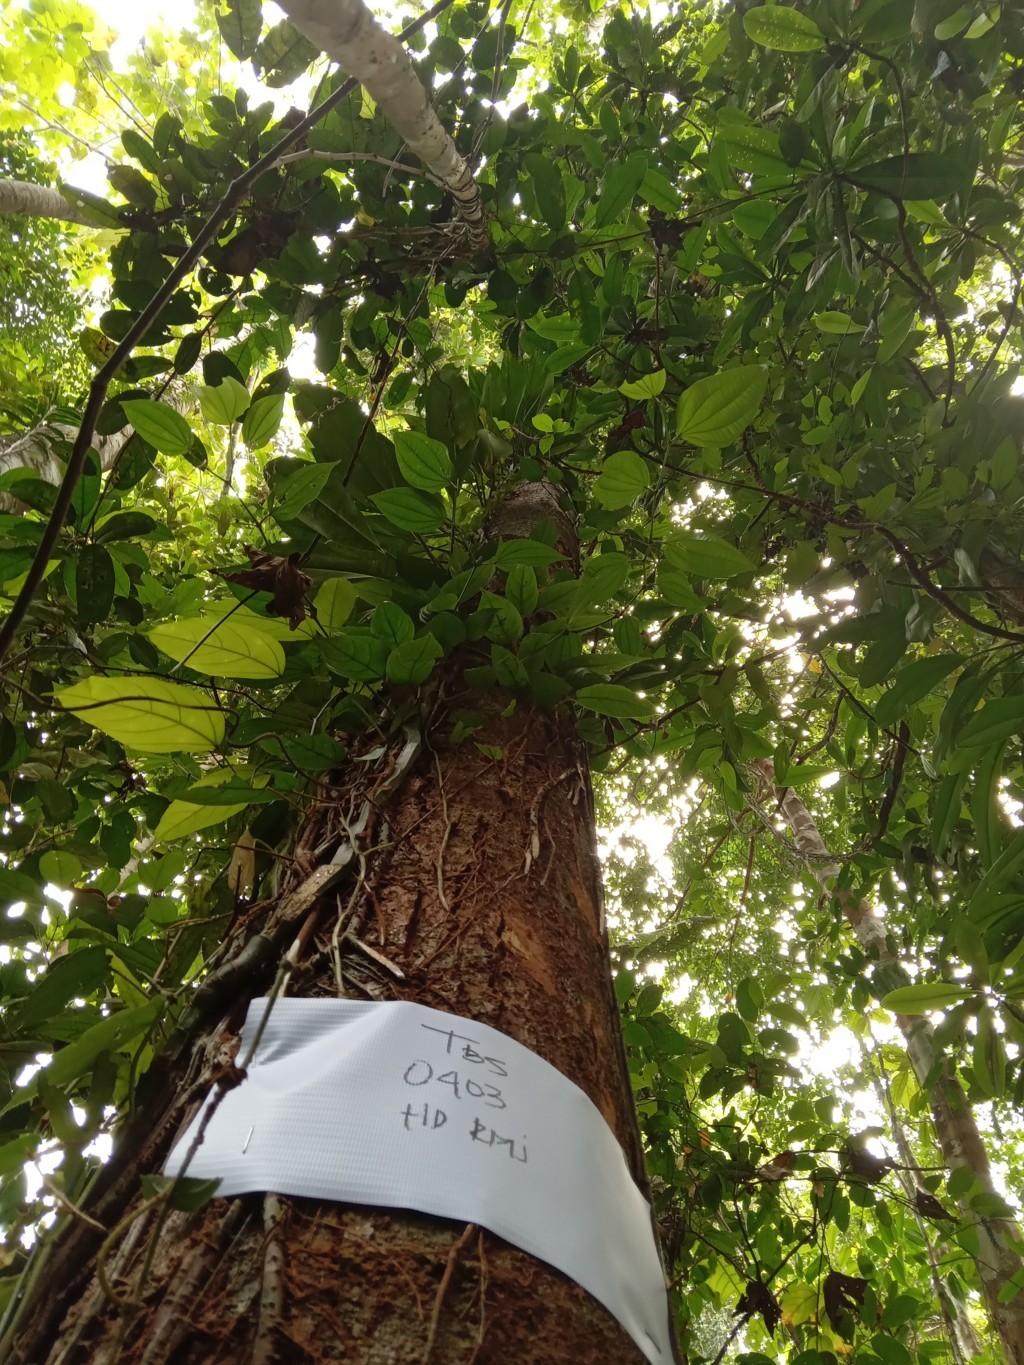 TBS
0403
HD RMi